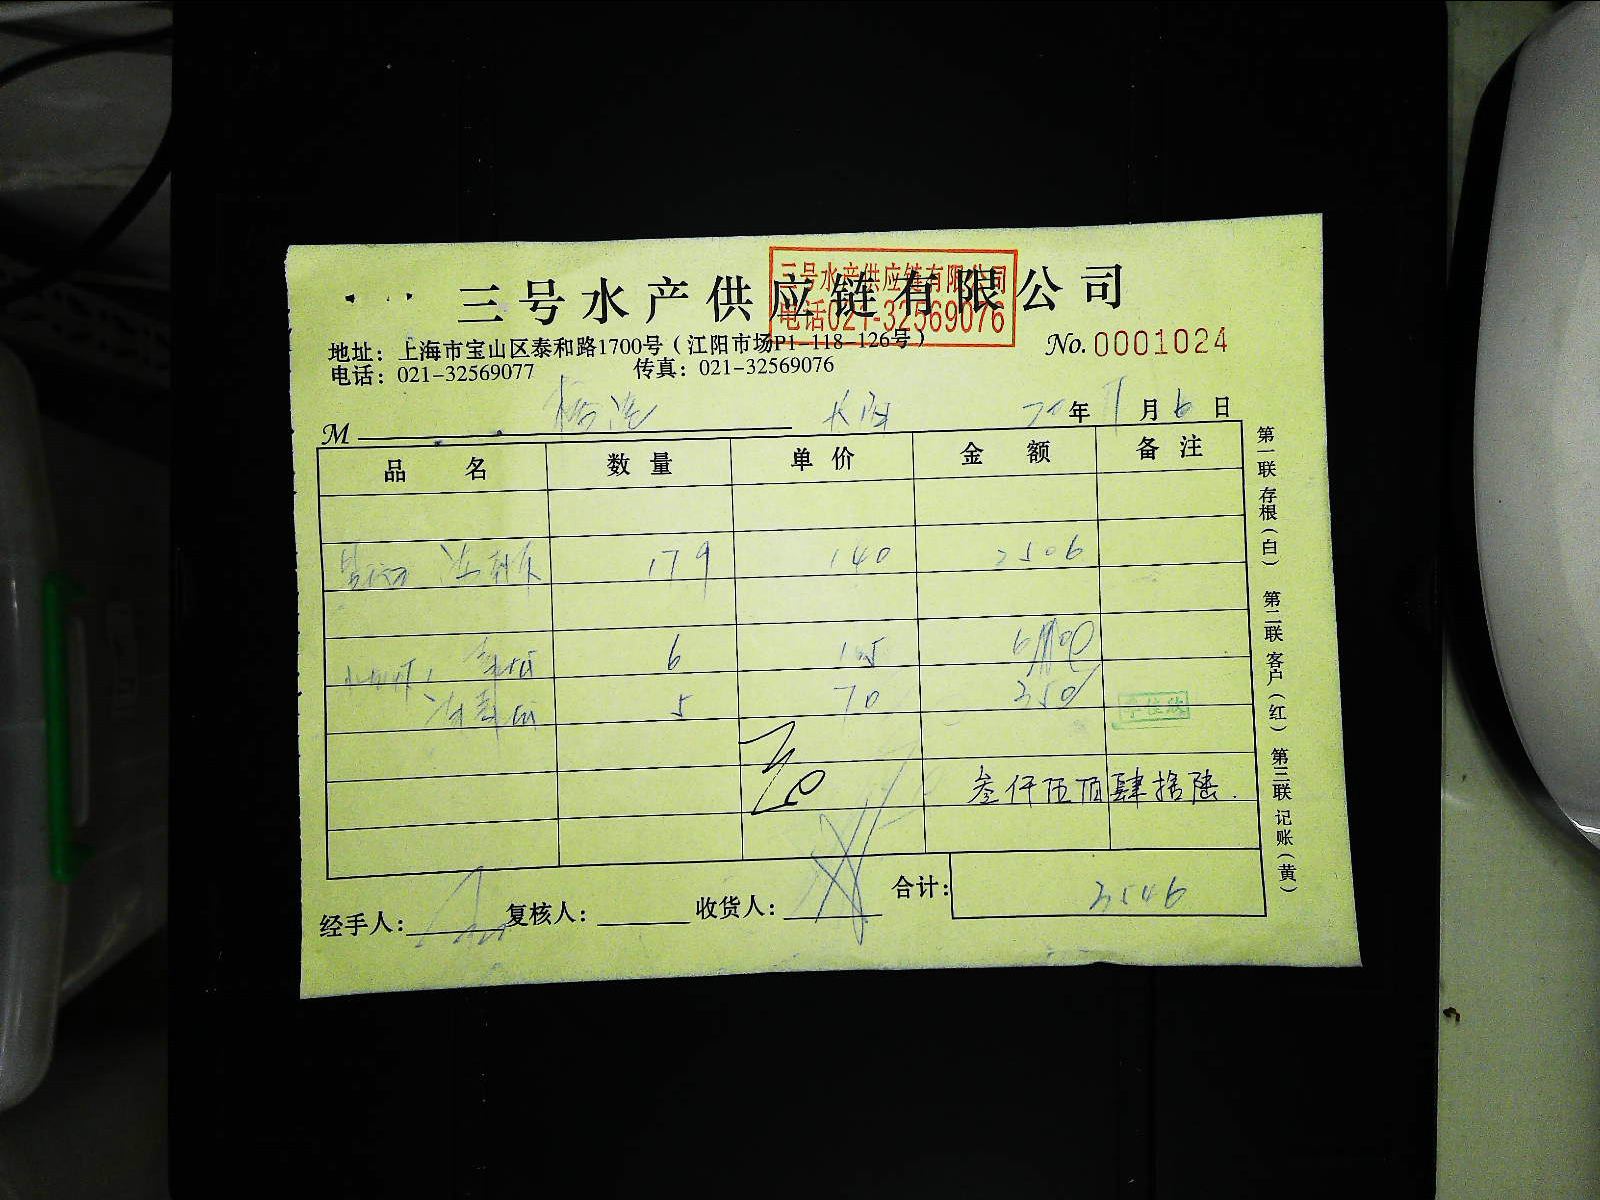 三号水产供应链有限公司
三号水产供应链有限公司
电话021-32569076
地址：上海市宝山区泰和路1700号（江阳市场P1-118-126号）
No.0001024
电话：021-32569077 传真：021-32569076
M 年 月 6 日
品名 数量 单价 金额 备注
179 140 2506
6
5 70 350
叁仟伍佰肆拾陆.
合计: 3546
经手人: 复核人: 收货人:
第一联 存根（白） 第二联 客户（红） 第三联 记账（黄）